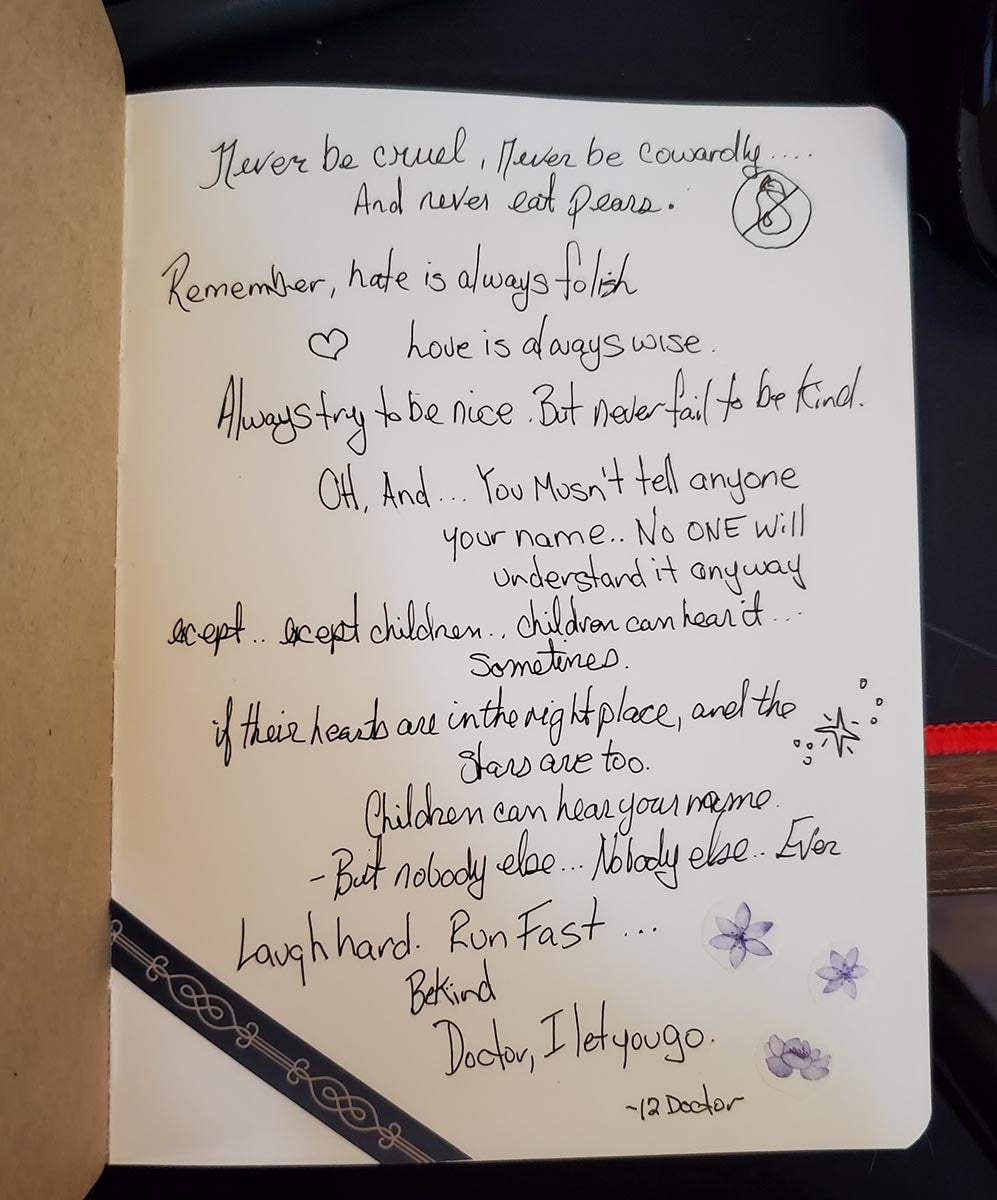 Never be cruel, Never be cowardly....
And never eat pears.
Remember, hate is always folish
Love is always wise.
Always try to be nice. But never fail to be kind.
OH, And... You Musn't tell anyone
your name.. No ONE will
understand it anyway
except.. except children.. children can hear it...
Sometimes.
if their hearts are in the right place, and the
Stars are too.
Children can hear your name.
- But nobody else... Nobody else.. Ever
Laugh hard. Run Fast ...
Be kind
Doctor, I let you go.
~12 Doctor